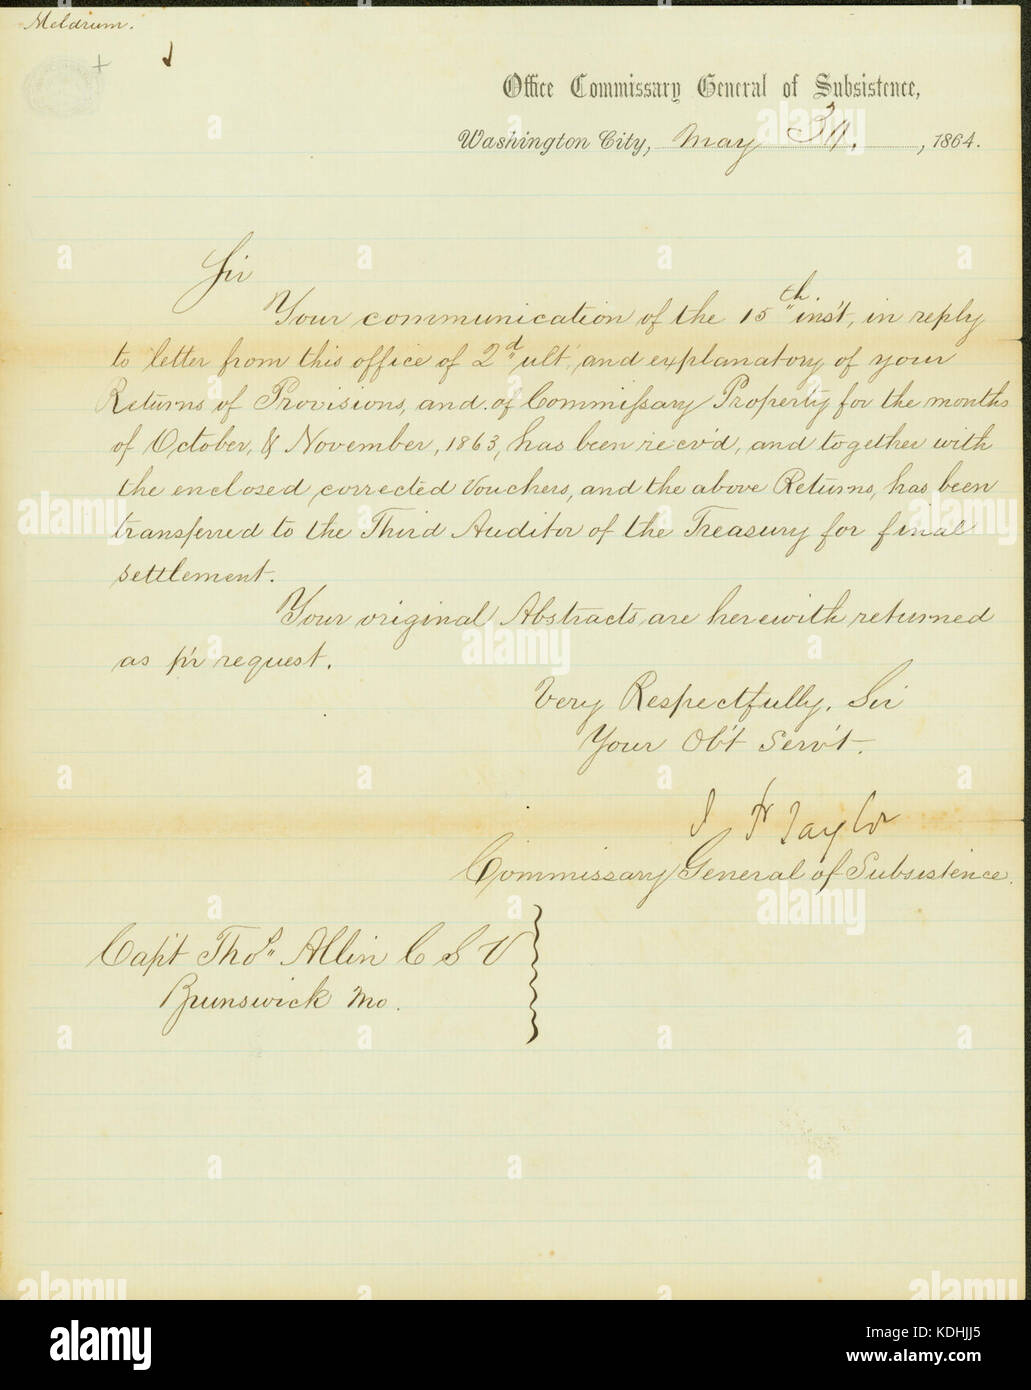 Meldrum.
Office Commissary General of Subsistence,
Washington City, May 31. , 1864.
Sir
Your communication of the 15th. inst, in reply
to letter from this office of 2d ult, and explanatory of your
Returns of Provisions, and of Commissary Property for the months
of October, & November, 1863, has been recv'd, and together with
the enclosed corrected Vouchers, and the above Returns, has been
transferred to the Third Auditor of the Treasury for final
settlement.
Your original Abstracts are herewith returned
as pr request.
Very Respectfully, Sir
Your Ob't Serv't.
Taylor
Commissary General of Subsistence.
Capt Thos Allin C S V
Brunswick Mo.
alamy
Image ID: KDHJJ5
www.alamy.com